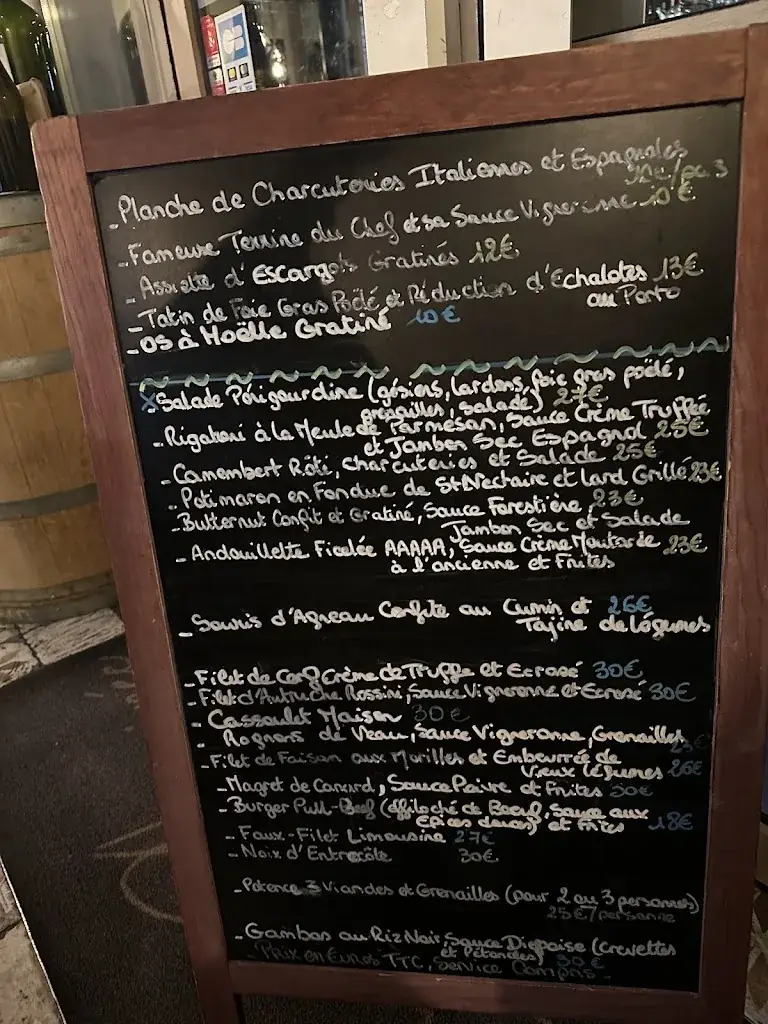 - Planche de Charcuteries Italiennes et Espagnoles
- Fameuse Terrine du Chef et sa Sauce Vigneronne 10€
- Assiette d'Escargots Gratinés 12€
- Tatin de Foie Gras Poêlé et Réduction d'Echalotes 13€
au Porto
- OS à Moëlle Gratiné 10€
Salade Périgourdine (gésiers, lardons, foie gras poêlé,
grenailles, salade) 27€
- Rigatoni à la Meule de Parmesan, Sauce Crème Truffée
et Jambon Sec Espagnol 25€
- Camembert Rôti, charcuteries et Salade 25€
- Potimaron en Fondue de St Nectaire et Lard Grillé 23€
- Butternut Confit et Gratiné, Sauce Forestière, 23€
Jambon Sec et Salade
- Andouillette Ficelée AAAAA, Sauce Crème Moutarde 23€
à l'ancienne et Frites
- Souris d'Agneau Confite au Cumin et 26€
Tajine de légumes
- Filet de Cerf Crème de Truffe et Ecrasé 30€
- Filet d'Autruche Rossini, Sauce Vigneronne et Ecrasé 30€
- Cassoulet Maison 30€
- Rognons de Veau, Sauce Vigneronne, Grenailles
23€
- Filet de Faisan aux Morilles et Embeurrée de
Vieux Légumes 26€
- Magret de Canard, Sauce Poivre et Frites 30€
- Burger Pull-Beef (effiloché de Boeuf, Sauce aux
Epices douces) et Frites 18€
- Faux-Filet Limousine 27€
- Noix d'Entrecôte 30€
- Potence 3 Viandes et Grenailles (pour 2 ou 3 personnes)
25€/personne
- Gambas au Riz Noir, Sauce Dieppoise (Crevettes
et Pétoncles) 30€
- Prix en Euros TTC, Service Compris -